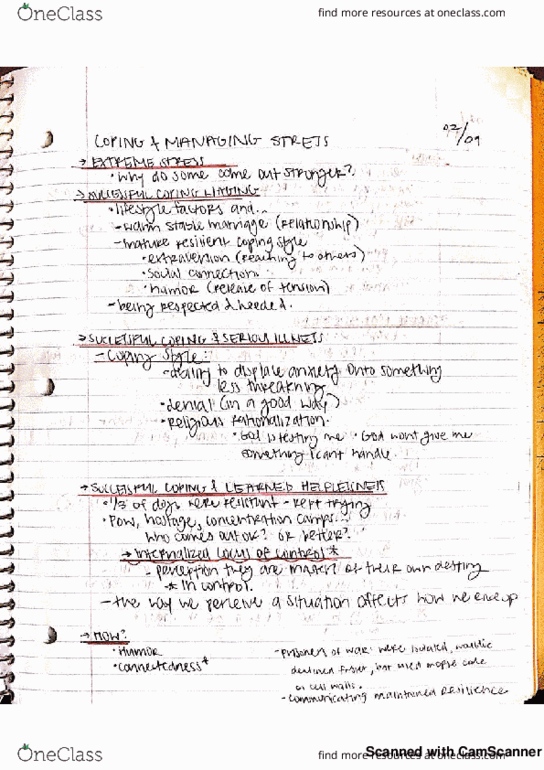 OneClass
find more resources at oneclass.com
COPING & MANAGING STRESS
02/09
→ EXTREME STRESS
• Why do some come out stronger?
→ SUCCESSFUL COPING
• lifestyle factors and...
- warm stable marriage (relationship)
- mature resilient coping style
• extraversion (reaching to others)
• social connection
• humor (release of tension)
- being respected & needed.
→ SUCCESSFUL COPING & SERIOUS ILLNESS
- Coping Style:
to displace anxiety onto something
less threatning
• denial (in a good way)
• religious rationalization.
• God is testing me • God wont give me
something I cant handle.
→ SUCCESSFUL COPING & LEARNED HELPLESSNESS
• 1/3 of dogs were resistant - kept trying
• POW, hostage, concentration camps...
who comes out ok? or better?
→ internalized locus of control *
- perception they are master of their own destiny
* in control.
- the way we perceive a situation affects how we end up
→ HOW?
• Humor
• connectedness *
- prisoners of war: were isolated,
declined faster, but used morse code
on cell walls.
- communicating maintained resilience
OneClass
find more resources at oneclass.com
Scanned with CamScanner